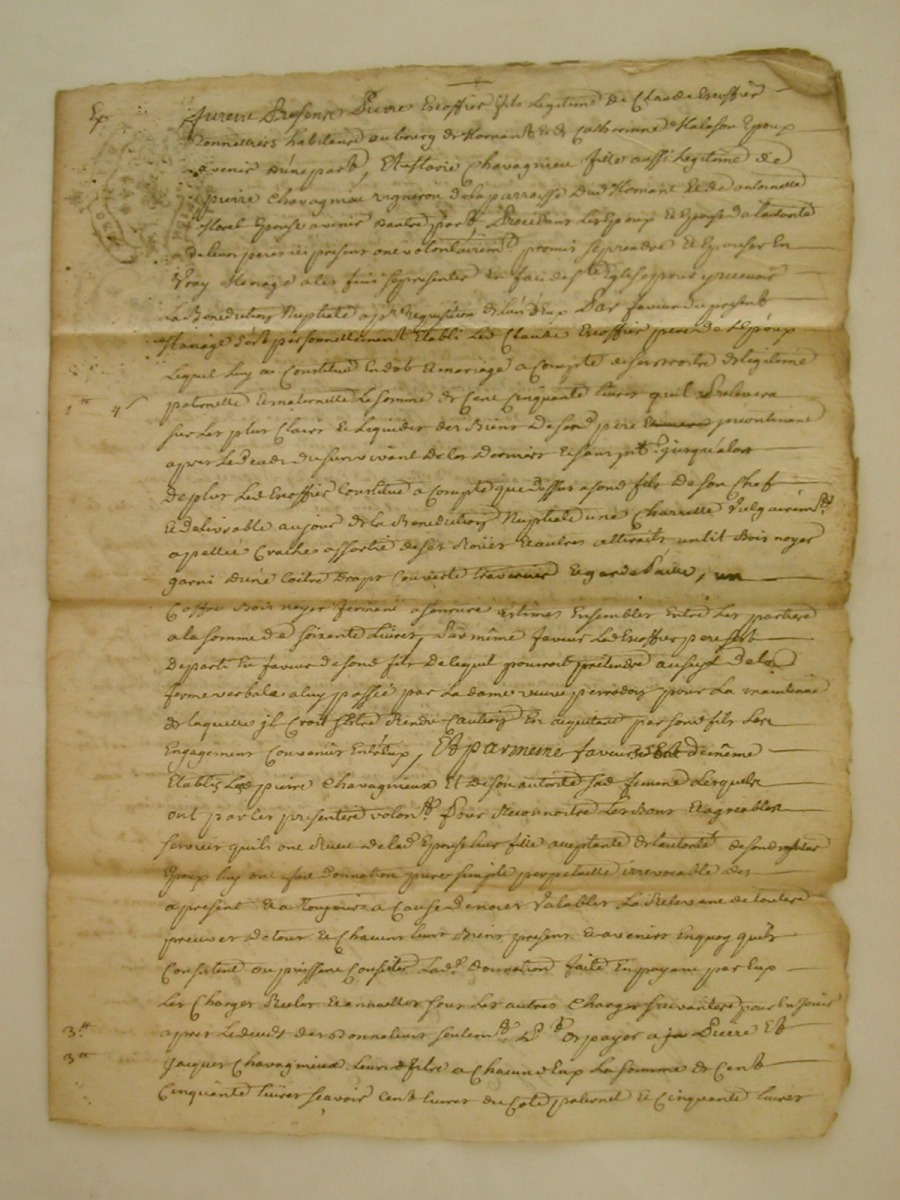 Ex
Furent Presens Pierre Escoffier fils Legitime De Claude Escoffier
Tonnelliers habitans au bourg de Mornant et de Catherinne Malason Epoux
avenir dune part, Et Marie Chavagnieu fille aussi Legitime de
pierre Chavagnieu vigneron dela parroisse Dud Mornant Et de antoinette
Morel Epouse avenir dautre part, Procedans Les Epoux et Epouse de l'autorité
de leurs peres icy presens ont volontairemt promis se prendre et Epouser En
Vray Mariage a les fins se presenter En face de ste Eglise pour y recevoir
La Benediction Nuptiale a pre Requisition de l'un d'Eux Par faveur du present
Mariage s'est personnellement Etabli Led Claude Escoffier pere de l'Epoux
Lequel luy a Constitué En dot et mariage a Compte de ses droits de legitime
1 4 paternelle et maternelle La somme de Cent Cinquante livres qu'il prelevera
sur Les plus Clairs et Liquides des Biens de sond pere
apres Le deces du survivant de Ces derniers jusqu'alors
De plus Led Escoffier Constitue a Compte que dessus a sond fils De son Chef
Et delivrable au jour de la Benediction Nuptiale une Charrette Vulgairemt
appellée assortie de ses Roues et autres attraits un lit Bois noyer
garni d'une Coitre Draps Couverte traversier et garde paille, un
Coffre Bois noyer fermant a serrure Estimés Ensembles Entre Les parties
a la somme de soixante Livres, Par même faveur Led Escoffier pere s'est
departi En faveur de sond fils De ce qu'il pourroit pretendre au sujet De la
ferme verbale a luy passée par La dame veuve pour La
de laquelle jl Croit s'Etre Rendu Caution En aquitant par sond fils Les
Engagemens Convenus Entr'Eux, Et par meme faveur se sont de même
Etablis Led pierre Chavagnieux Et De son autorité sad femme Lesquels
ont par Ces presentes volonrt Pour Reconnoitre Les Bons Et agreables
services qu'ils ont Reçu de lad Epouse Leur fille acceptante de l'autorité de sond
Epoux luy ont fait donnation pure simple perpetuelle irrevocable des
apresent et a Toujours a Cause de noces Valable La Relevant de toutes
preuves de tous et Chacuns Leurs Biens presens et avenirs En quoy qu'ils
Consistent ou puissent Consister Lad. Donnation faite En payant par Eux
Les Charges Reelles et annuelles sous Les autres Charges suivantes pour En jouir
3 apres Le deceds des Donnateurs seulemt de payer a Pierre Et
3 Jacques Chavagnieux Leurs fils a Chacun d'Eux La somme de Cent
Cinquante livres sçavoir Cent livres du Coté paternel et Cinquante livres